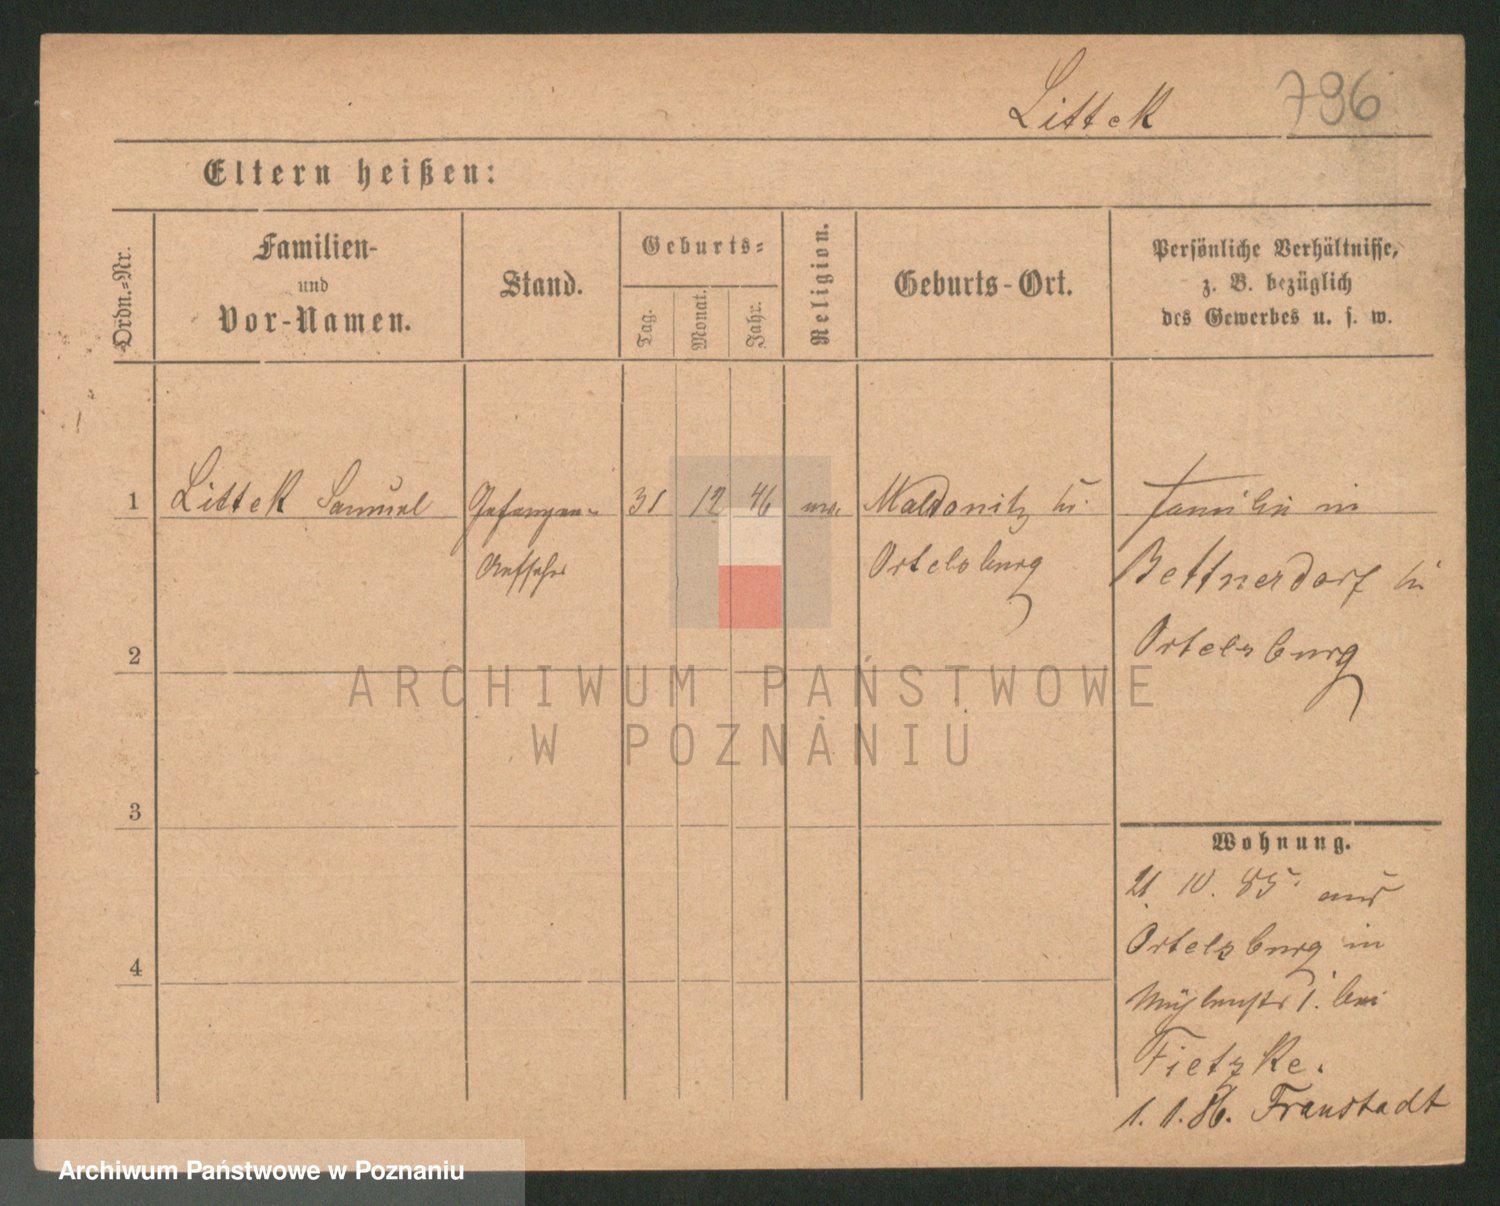 Littek 796
Eltern heißen:
Ordn.-Nr.
Familien-
und
Vor-Namen.
Stand.
Geburts-
Tag.
Monat.
Jahr.
Religion.
Geburts-Ort.
Persönliche Verhältnisse,
z. B. bezüglich
des Gewerbes u. s. w.
1 Littek Samuel Gefangen- 31 12 46 Maldonitz bei Familie in
Aufseher Ortelsburg Bettnerdorf bei
2 Ortelsburg
ARCHIWUM PAŃSTWOWE
W POZNANIU
3
Wohnung.
21. 10. 85. aus
Ortelsburg in
4
Mühlenstr 1. bei
Fietzke.
1. 1. 86. Fraustadt
Archiwum Państwowe w Poznaniu